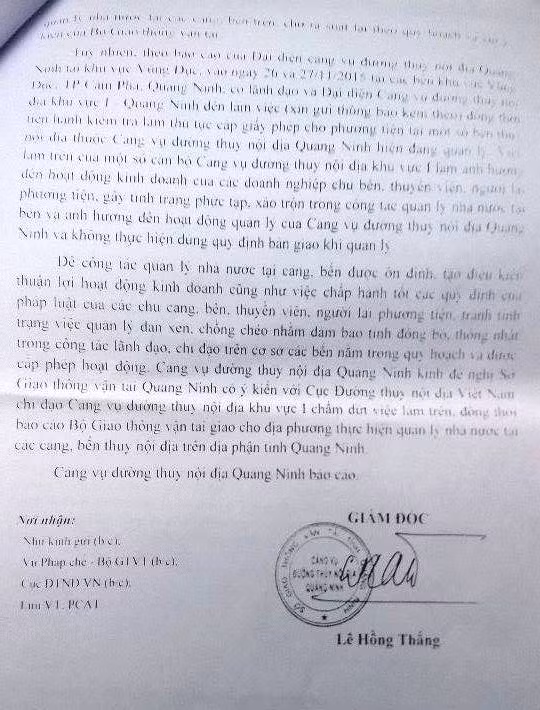 quản lý nhà nước tại các cảng, bến trên, cho rà soát lại theo quy hoạch và
kiến của Bộ Giao thông vận tải.
Tuy nhiên, theo báo cáo của Đại diện cảng vụ đường thủy nội địa Quảng
Ninh tại khu vực Vũng Đục, vào ngày 26 và 27/11/2015 tại các bến khu vực Vũng
Đục, TP Cẩm Phả, Quảng Ninh, có lãnh đạo và Đại diện Cảng vụ đường thủy nội
địa khu vực I - Quảng Ninh đến làm việc (xin gửi thông báo kèm theo) đồng thời
tiến hành kiểm tra làm thủ tục cấp giấy phép cho phương tiện tại một số bến thủy
nội địa thuộc Cảng vụ đường thủy nội địa Quảng Ninh hiện đang quản lý. Việc
làm trên của một số cán bộ Cảng vụ đường thủy nội địa khu vực I làm ảnh hưởng
đến hoạt động kinh doanh của các doanh nghiệp chủ bến, thuyền viên, người lái
phương tiện, gây tình trạng phức tạp, xáo trộn trong công tác quản lý nhà nước tại
bến và ảnh hưởng đến hoạt động quản lý của Cảng vụ đường thủy nội địa Quảng
Ninh và không thực hiện đúng quy định bàn giao khi quản lý.
Để công tác quản lý nhà nước tại cảng, bến được ổn định, tạo điều kiện
thuận lợi hoạt động kinh doanh cũng như việc chấp hành tốt các quy định của
pháp luật của các chủ cảng, bến, thuyền viên, người lái phương tiện, tránh tình
trạng việc quản lý đan xen, chồng chéo nhằm đảm bảo tính đồng bộ, thống nhất
trong công tác lãnh đạo, chỉ đạo trên cơ sở các bến nằm trong quy hoạch và được
cấp phép hoạt động. Cảng vụ đường thủy nội địa Quảng Ninh kính đề nghị Sở
Giao thông vận tải Quảng Ninh có ý kiến với Cục Đường thủy nội địa Việt Nam
chỉ đạo Cảng vụ đường thủy nội địa khu vực I chấm dứt việc làm trên, đồng thời
báo cáo Bộ Giao thông vận tải giao cho địa phương thực hiện quản lý nhà nước tại
các cảng, bến thủy nội địa trên địa phận tỉnh Quảng Ninh.
Cảng vụ đường thủy nội địa Quảng Ninh báo cáo.
Nơi nhận:
Như kính gửi (b/c);
Vụ Pháp chế - Bộ GTVT (b/c);
Cục ĐTNĐ VN (b/c);
Lưu VT, PCAT
GIÁM ĐỐC
CẢNG VỤ
ĐƯỜNG THỦY NỘI ĐỊA
QUẢNG NINH
Lê Hồng Thắng